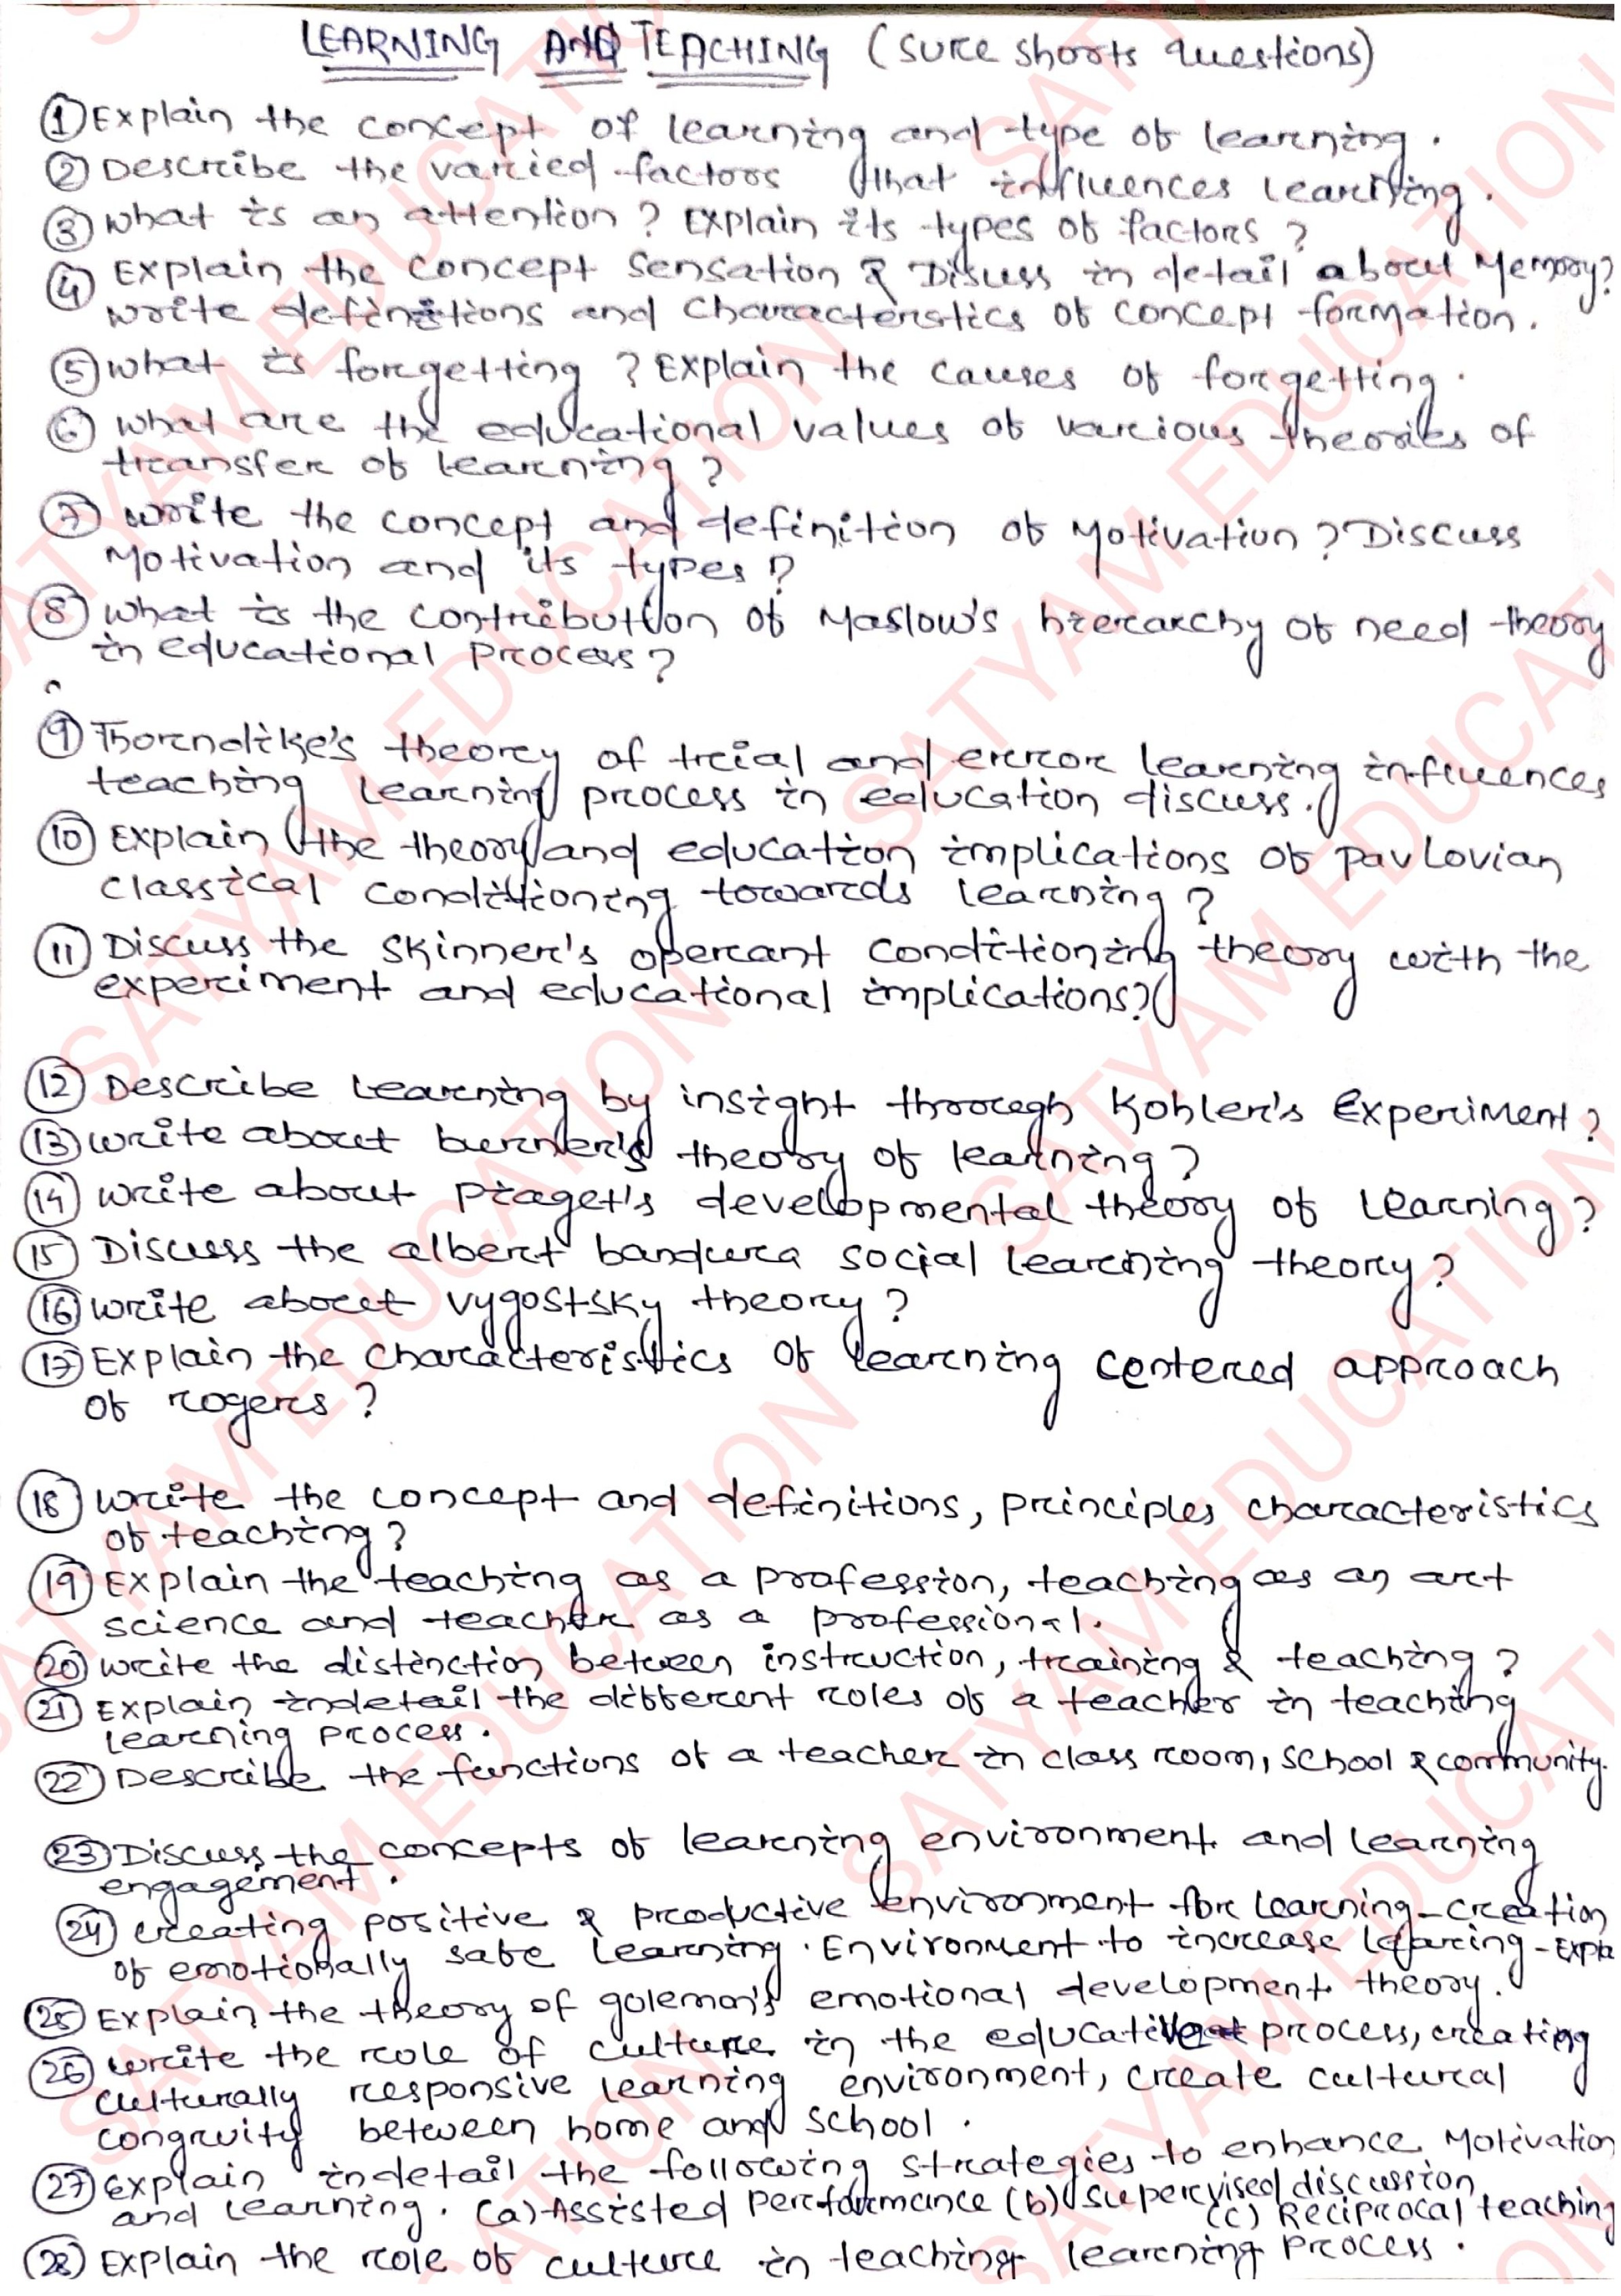 LEARNING AND TEACHING (Sure shorts Questions)
① Explain the concept of learning and type of learning.
② Describe the varied factors that influences learning.
③ What is an attention? Explain its types of factors?
④ Explain the concept Sensation & Discuss in detail about Memory?
Write definitions and characteristics of concept formation.
⑤ What is forgetting? Explain the causes of forgetting.
⑥ What are the educational values of various theories of
transfer of learning?
⑦ Write the concept and definition of Motivation? Discuss
Motivation and its types?
⑧ What is the contribution of Maslow's hierarchy of need theory
in educational process?
⑨ Thorndike's theory of trial and error learning influences
teaching learning process in education discuss.
⑩ Explain the theory and education implications of pavlovian
classical conditioning towards learning?
⑪ Discuss the Skinner's operant conditioning theory with the
experiment and educational implications?
⑫ Describe learning by insight through Kohler's Experiment?
⑬ Write about burner's theory of learning?
⑭ Write about Piaget's developmental theory of learning?
⑮ Discuss the albert bandura social learning theory?
⑯ Write about vygostsky theory?
⑰ Explain the characteristics of learning centered approach
of rogers?
⑱ Write the concept and definitions, principles characteristics
of teaching?
⑲ Explain the teaching as a profession, teaching as an art
science and teacher as a professional.
⑳ Write the distinction between instruction, training & teaching?
㉑ Explain indetail the different roles of a teacher in teaching
learning process.
㉒ Describe the functions of a teacher in class room, school & community.
㉓ Discuss the concepts of learning environment and learning
engagement.
㉔ creating positive & productive environment for learning - creation
of emotionally safe learning. Environment to increase learing - Expla
㉕ Explain the theory of goleman's emotional development theory.
㉖ Write the role of culture in the educative process, creating
culturally responsive learning environment, create cultural
congruity between home and school.
㉗ Explain indetail the following strategies to enhance Motivation
and learning. (a) Assisted performance (b) supervised discussion
(c) Reciprocal teaching
㉘ Explain the role of culture in teaching learning process.
SATYAM EDUCATION
SATYAM EDUCATION
SATYAM EDUCATION
SATYAM EDUCATION
SATYAM EDUCATION
SATYAM EDUCATION
SATYAM EDUCATION
SATYAM EDUCATION